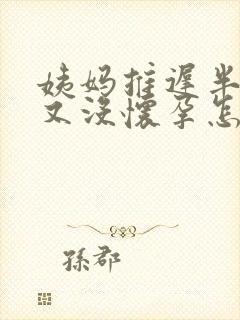 姨妈推迟半
又没怀孕怎
孫郡